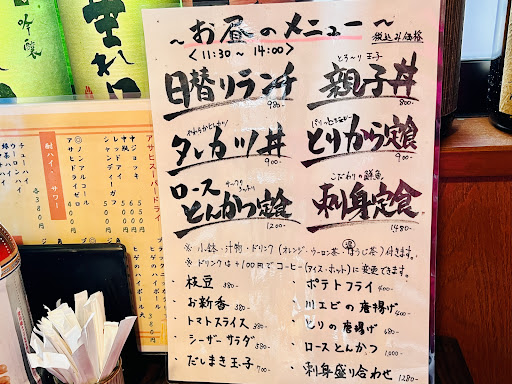 ~お昼のメニュー~
税込み価格
<11:30~14:00>
日替りランチ
980-
とろ~り玉子
親子丼
800-
やわらかヒレカツ
タレカツ丼
900-
とりから定食
900-
ロース
とんかつ定食
1200-
こだわりの鮮魚
刺身定食
1480-
※小鉢・汁物・ドリンク(オレンジ・ウーロン茶・ほうじ茶)付きます。
※ドリンクは+100円でコーヒー(アイス・ホット)に変更できます。
・枝豆 380-
・お新香 380-
・トマトスライス 380-
・シーザーサラダ 580-
・だしまき玉子 700-
・ポテトフライ 400-
・川エビの唐揚げ 400-
・とりの唐揚げ 680-
・ロースとんかつ 1,000-
・刺身盛り合わせ 1280-
吟醸
アサヒスーパードライ
中ジョッキ
シャンディーガフ
◎ノンアルコール
アサヒドライゼロ
酎ハイ・サワー
各380円